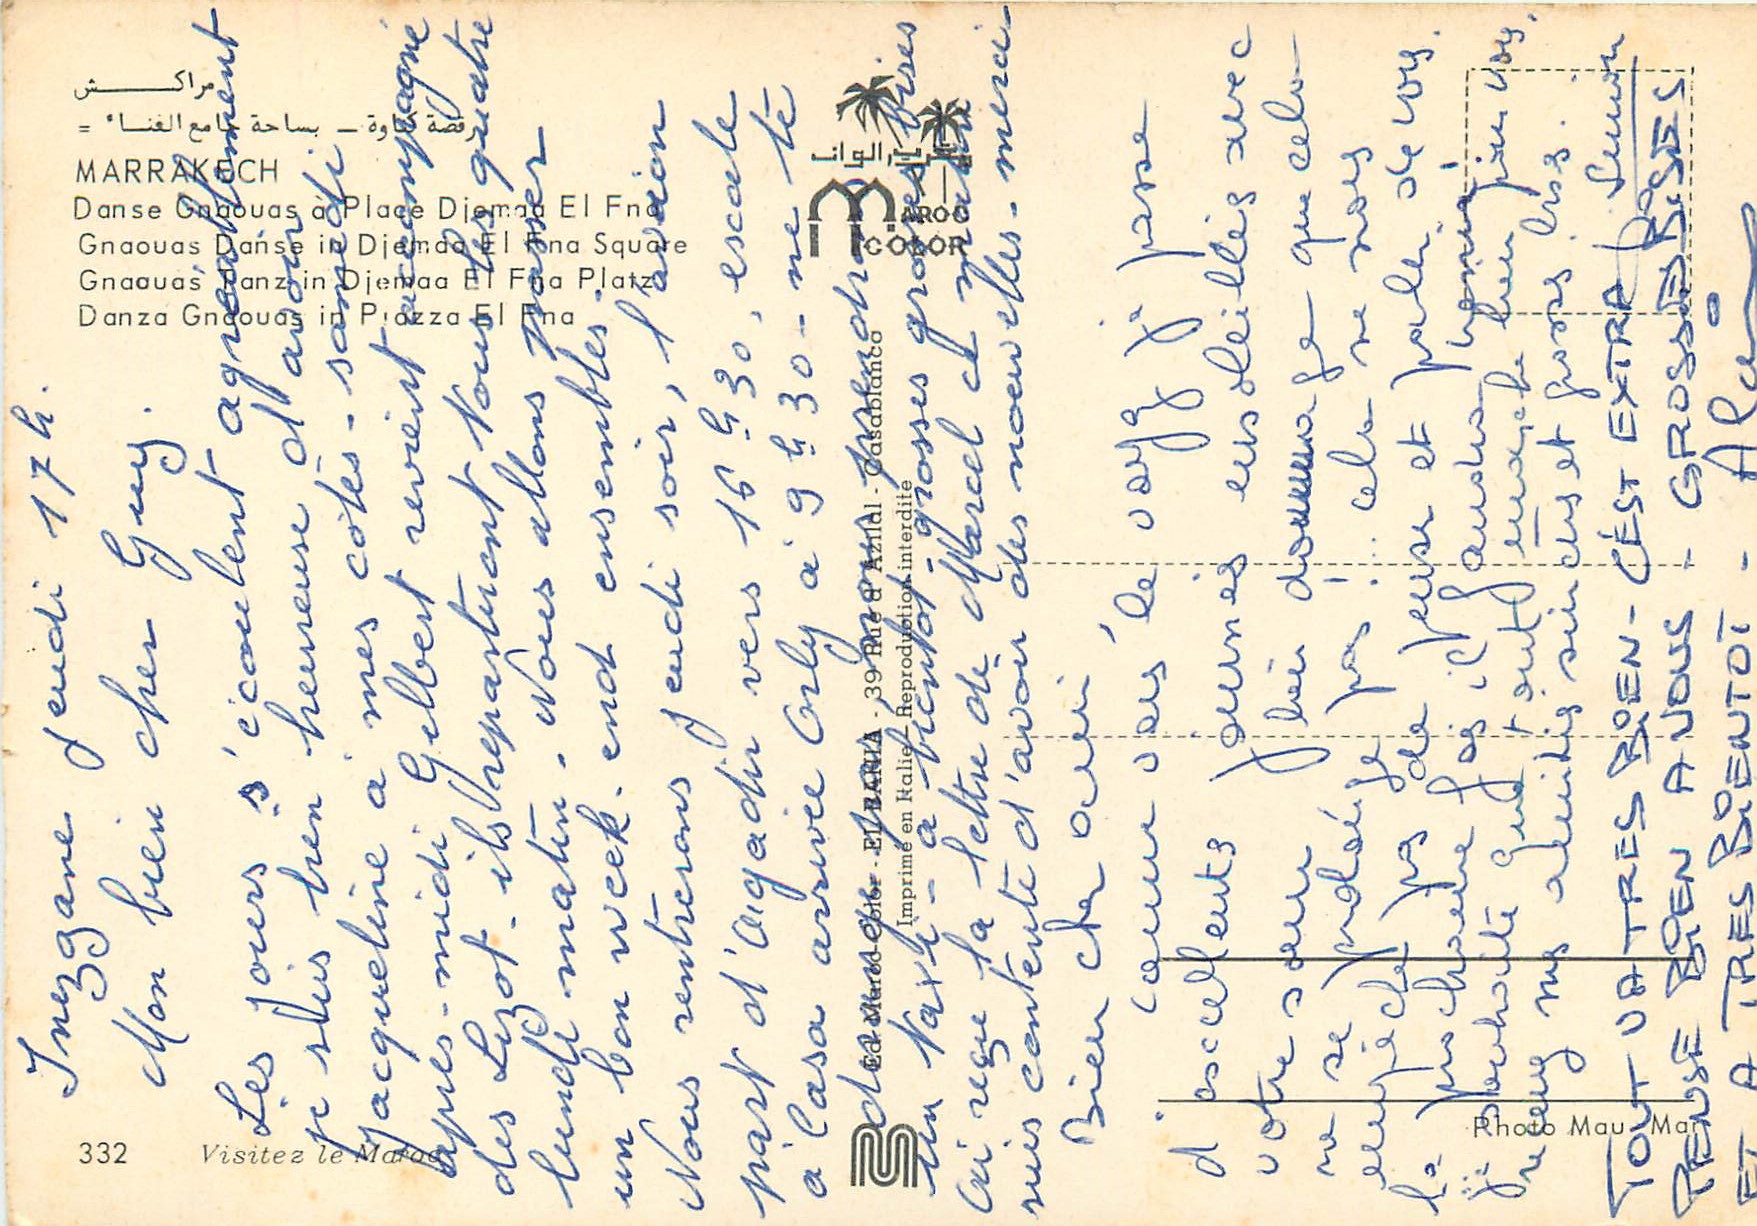 مراكـــــش
رقصة كناوة ـ بساحة جامع الفناء =
MARRAKECH
Danse Gnaouas à Place Djemaa El Fna
Gnaouas Danse in Djemaa El Fna Square
Gnaouas Danz in Djemaa El Fna Platz
Danza Gnaouas in Piazza El Fna
MAROC
COLOR
332
Visitez le Maroc
Ed. Maroc Color - EL BARIA - 39 Rue d'Azilal - Casablanca
Imprimé en Italie - Reproduction interdite
Photo Mau Mar
Inezgane Jeudi 17 h.
Mon bien cher Guy.
Les jours s'écoulent agréablement
je suis bien heureuse d'avoir
Jacqueline à mes côtés - samedi
après-midi Gilbert revient accompagné
des Lizot. ils repartiront tous les quatre
lundi matin. Nous allons passer
un bon week. end ensembles.
Nous rentrerons jeudi soir, l'avion
part d'Agadir vers 16 h 30, escale
à Casa arrivée Orly à 9 h 30 - ne te
dérange pas nous prendrons
un taxi - à bientôt. grosses grosses bises
ai reçu ta lettre de Marcel et
suis contente d'avoir des nouvelles. merci
Bien cher ami
comme vous le voyez je passe
d'excellents journées ensoleillées avec
votre soeur bien je que celo
ne se je pas ! celo ne nous
empêche pas de penser et parler de vous.
la prochaine fois il faudra venir
je souhaite que tout marche bien pour vous.
mes amitiés sincères et gross bises.
Simon
TOUT VA TRES BIEN - C'EST EXTRA
PENSE BIEN A VOUS - GROSSES BISES
ET A TRES BIENTOT -